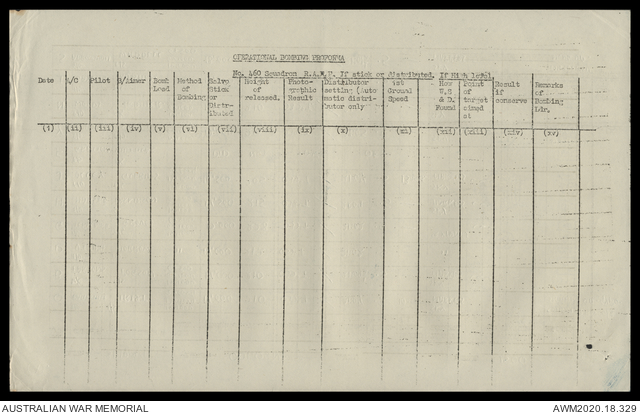 OPERATIONAL BOMBING PROFORMA
No. 460 Squadron R.A.A.F. If stick or distributed. If High level
Date
A/C
Pilot
B/Aimer
Bomb
Load
Method
of
Bombing
Salvo
Stick
or
Distri-
buted
Height
of
released.
Photo-
graphic
Result
Distributor
setting (Auto
matic distri-
butor only
Ground
Speed
How
W.S
& D.
Found
Point
of
target
aimed
at
Result
if
conserve
Remarks
of
Bombing
Ldr.
(i) (ii) (iii) (iv) (v) (vi) (vii) (viii) (ix) (x) (xi) (xii) (xiii) (xiv) (xv)
AUSTRALIAN WAR MEMORIAL
AWM2020.18.329